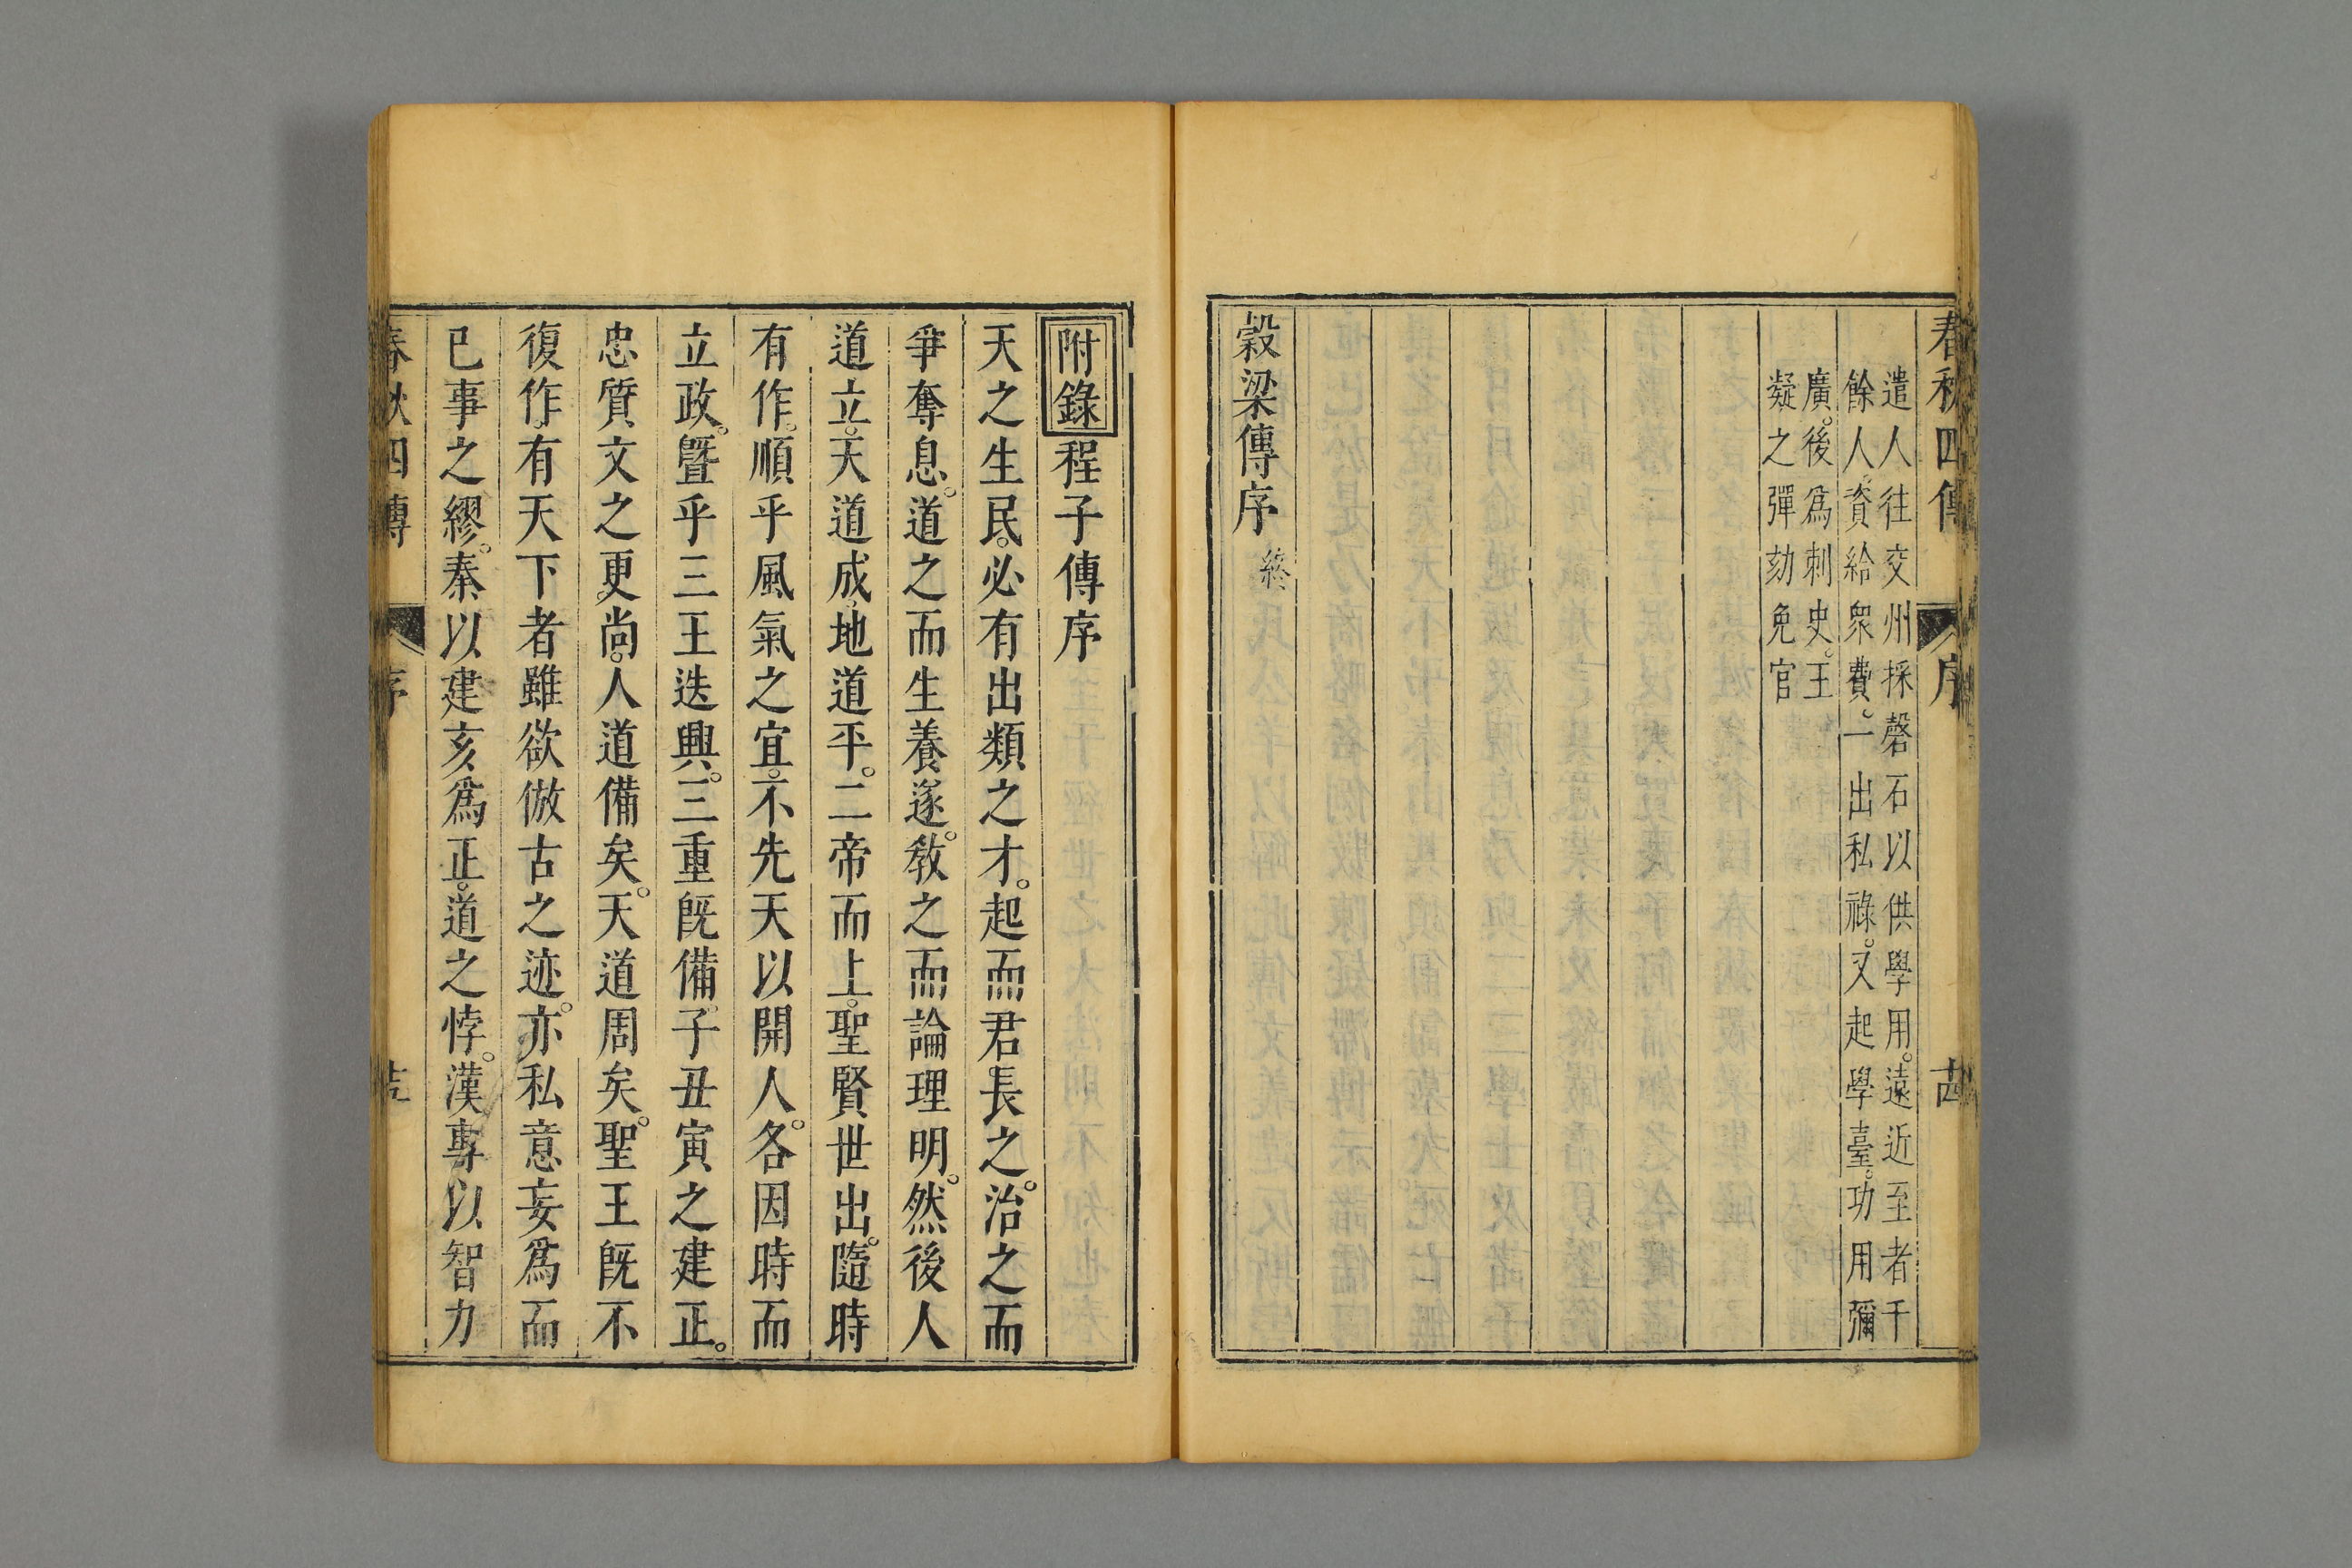 春秋四傳 序 十四
遣人往交州採磬石以供學用。遠近至者千
餘人。資給衆費。一出私祿。又起學臺。功用彌
廣。後爲刺史。王
凝之彈劾免官
穀梁傳序 終
附錄 程子傳序
天之生民。必有出類之才。起而君長之。治之而
爭奪息。道之而生養遂。教之而論理明。然後人
道立。天道成。地道平。二帝而上。聖賢世出。隨時
有作。順乎風氣之宜。不先天以開人。各因時而
立政。曁乎三王迭興。三重旣備。子丑寅之建正。
忠質文之更尚。人道備矣。天道周矣。聖王旣不
復作。有天下者雖欲倣古之迹。亦私意妄爲而
已事之繆。秦以建亥爲正。道之悖。漢專以智力
春秋四傳 序